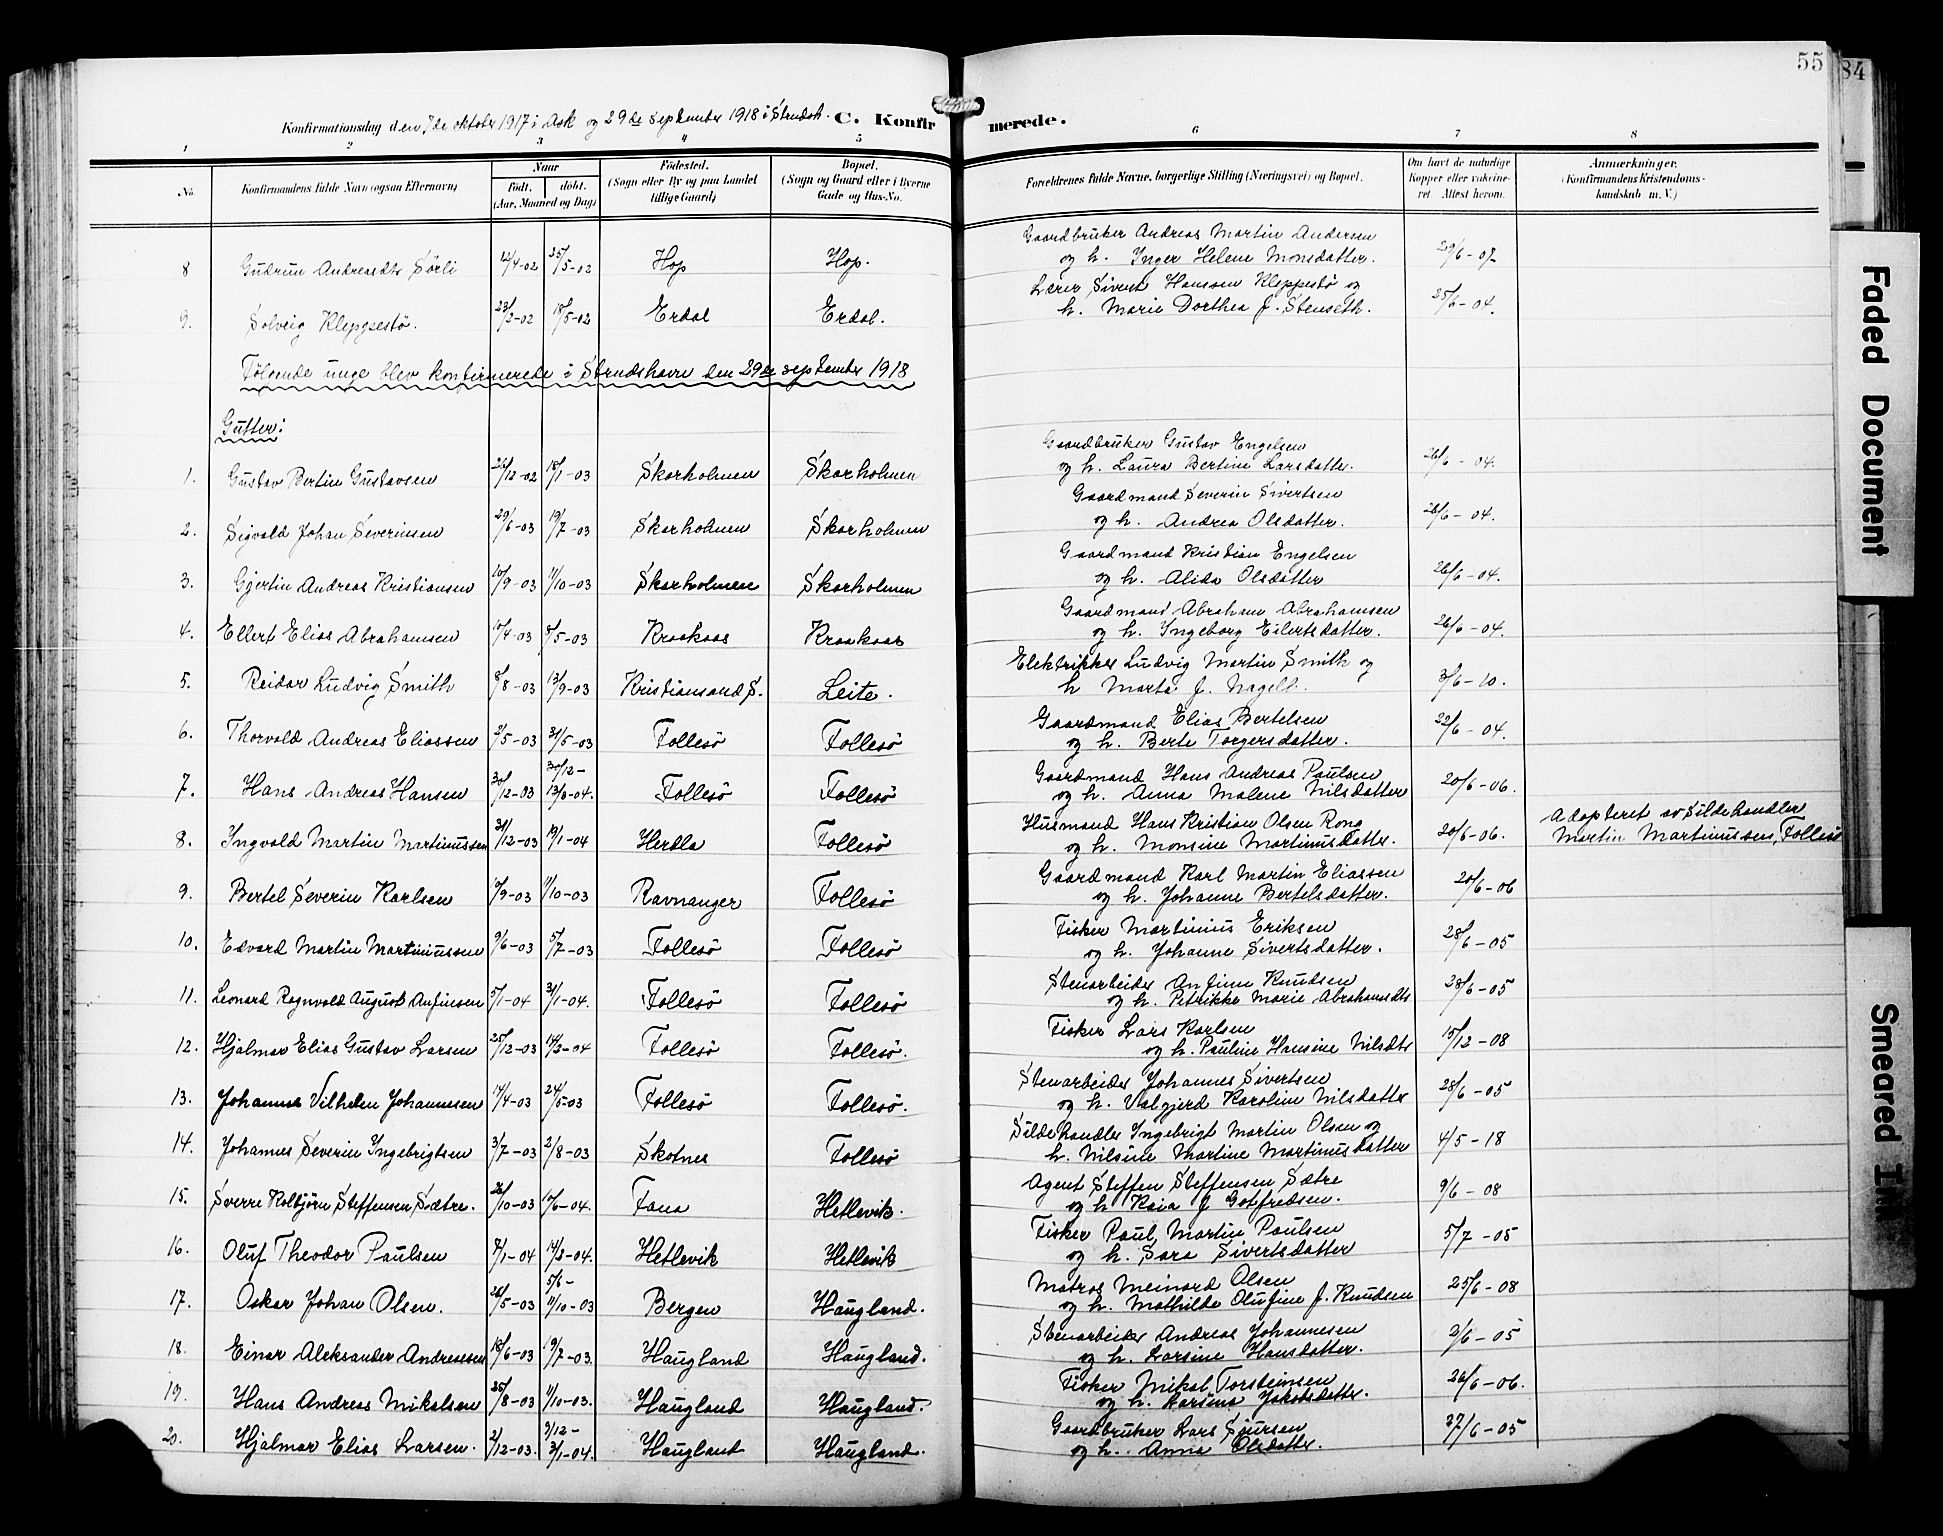 55
84
Konfirmationsdag den 7de oktober 1917 i Ask og 29de september 1918 i Strudsh. C. Konfirmerede.
1 2 3 4 5 6 7 8
No. Konfirmandens fulde Navn (ogsaa Efternavn) Naar født. døbt. (Aar, Maaned og Dag) Fødested. (Sogn eller By og paa Landet tillige Gaard) Bopæl. (Sogn og Gaard eller i Byerne Gade og Hus-No. Forældrenes fulde Navne, borgerlige Stilling (Næringsvei) og Bopæl. Om havt de naturlige Kopper eller vakcineret Attest herom. Anmærkninger. (Konfirmandens Kristendomskundskab m. V.)
Gaardbruker Andreas Martin Andersen
8 Gudrun Andreasdtr Sørli 12/4-02 25/5-02 Hop Hop. og h. Inger Helene Monsdatter. 29/6-07
Lærer Sivert Hansen Kleppestø og
9. Solveig Kleppestø. 23/2-02 18/5-02 Erdal Erdal. h. Marie Dorthea f. Stenseth. 25/6-04.
Følgende unge blev konfirmerede i Strudshavn den 29de september 1918
Gutter:
Gaardbruker Gustav Engelsen
1. Gustav Bertin Gustavsen 26/12-02 18/1-03 Skarholmen Skarholmen og h. Laura Bertine Larsdatter. 26/6-04.
Gaardmand Severin Sivertsen
2. Sigvald Johan Severinsen 29/6-03 19/7-03 Skarholmen Skarholmen og h. Andrea Olsdatter. 26/6-04.
Gaardmand Kristian Engelsen
3. Gjertin Andreas Kristiansen 10/9-03 11/10-03 Skarholmen Skarholmen og h. Alida Olsdatter 26/6-04.
Gaardmand Abraham Abrahamsen
4. Ellert Elias Abrahamsen 10/4-03 8/5-03 Kraakaas Kraakaas og h. Ingeborg Eilertsdatter. 26/6-04.
Elektriker Ludvig Martin Smith og
5. Reidar Ludvig Smith 8/8-03 13/9-03 Kristiansand S. Leite. h Marta f. Nagell. 3/6-10.
Gaardmand Elias Bertelsen
6. Thorvald Andreas Eliassen 2/5-03 31/5-03 Follesø Follesø og h. Berte Torgersdatter. 22/6-04.
30/12- Gaardmand Hans Andreas Paulsen
7. Hans Andreas Hansen 30/12-03 13/3-04. Follesø Follesø og h. Anna Malene Nilsdatter 20/6-06.
Husmand Hans Kristian Olsen Rong Adopteret av Sildehandler
8. Ingvald Martin Martinussen 31/12-03 19/1-04 Herdla Follesø og h. Monsine Martinusdatter. 20/6-06. Martin Martinussen, Follesø
Gaardmand Karl Martin Eliassen
9. Bertel Severin Karlsen 10/9-03 11/10-03 Ravnanger Follesø og h. Johanne Bertelsdatter. 20/6-06
Fisker Martinius Eriksen
10. Edvard Martin Martiniussen 9/6-03 5/7-03 Follesø Follesø og h. Johanne Sivertsdatter. 28/6-05
Stenarbeider Anfinn Knudsen
11. Leonard Ragnvald August Anfinsen 5/1-04 31/1-04. Follesø Follesø og h. Petrikke Marie Abrahamsdtr 28/6-05
Fisker Lars Karlsen
12. Hjalmar Elias Gustav Larsen 25/12-03 14/2-04 Follesø Follesø. og h. Pauline Hansine Nilsdtr 15/12-08
Stenarbeider Johannes Sivertsen
13. Johannes Vilhelm Johannessen 14/4-03 24/5-03 Follesø Follesø. og h. Valgjerd Karoline Nilsdatter 28/6-05
Sildehandler Ingebrigt Martin Olsen og
14. Johannes Severin Ingebrigtsen 3/7-03 2/8-03 Skotnes Follesø h. Nilsine Martine Martinusdatter 4/5-18
Agent Steffen Steffensen Sætre
15. Sverre Kolbjørn Steffensen Sætre. 26/10-03 10/6-04. Fana Hetlevik. og h Kaia f Gotfredsen. 9/6-08
Fisker Paul Martin Paulsen
16. Oluf Theodor Paulsen 8/1-04 14/2-04. Hetlevik Hetlevik og h. Sara Sivertsdatter 5/7-05
5/6- Matros Meinard Olsen
17. Oskar Johan Olsen. 26/5-03 11/10-03 Bergen Haugland. og h. Mathilde Olufine f. Knudsen 25/6-08
Stenarbeider Andreas Johannesen
18. Einar Aleksander Andreassen 18/6-03 19/7-03. Haugland Haugland. og h. Larsine Hansdatter. 2/6-05
Fisker Mikal Torsteinsen
19. Hans Andreas Mikalsen 25/8-03 11/10-03. Haugland Haugland. og h. Karsine Jakobsdatter. 26/6-06.
9/12- Gaardbruker Lars Sjursen
20. Hjalmar Elias Larsen. 2/12-03. 3/1-04. Haugland Haugland. og h. Anna Olsdatter. 27/6-05
Faded Document
Smeared Ink